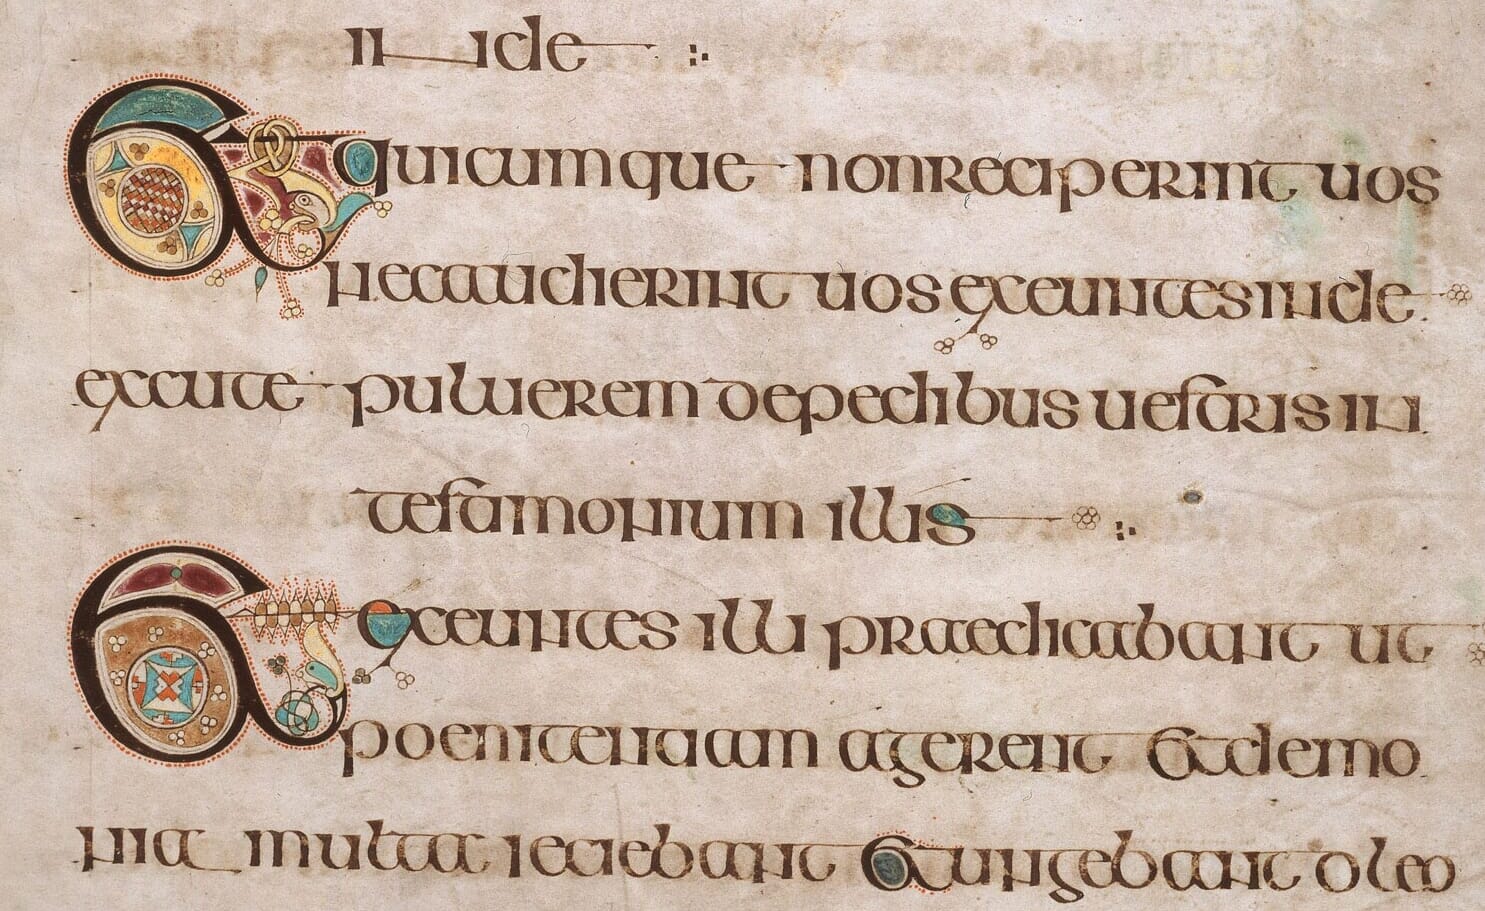 inde
Et quicumque non reciperint uos
nec audierint uos exeuntes inde
excutite puluerem de pedibus uestris in
testimonium illis
Et exeuntes illi praedicabant ut
poenitentiam agerent Et demo
nia multa ieciebant Et ungebant oleo